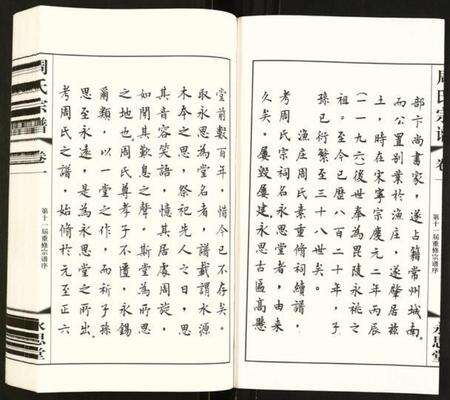 周氏宗谱
卷一
第十一届重修宗谱序
永思堂
部卞尚書家，遂占籍常州城南。
而公置别業於漁庄，遂肇居兹
土，時在宋寧宗慶元二年丙辰
（一一九六）後世奉為毘陵永祧之
祖。至今已歷八百二十年，子
孫已衍繁至三十八世矣。
漁庄周氏重脩祠續譜，
考周氏宗祠名永思堂者，由来
久矣，屢毁屢建永思古區高懸
堂前數百年，惜今已不存矣。
取永思為堂名者，譜載謂水源
木本之思，祭祀先人之日，思
其音容笑語，憶其居處周旋，
如聞其歎息之聲，斯堂為所思
之地也周氏尊孝子不匱，永錫
爾類，以一堂之作，而祈子孫
思至永遠，是為永思堂之所出。
考周氏之譜，始脩於元至正六
周氏宗譜
卷一
第十一届重修宗谱序
永思堂